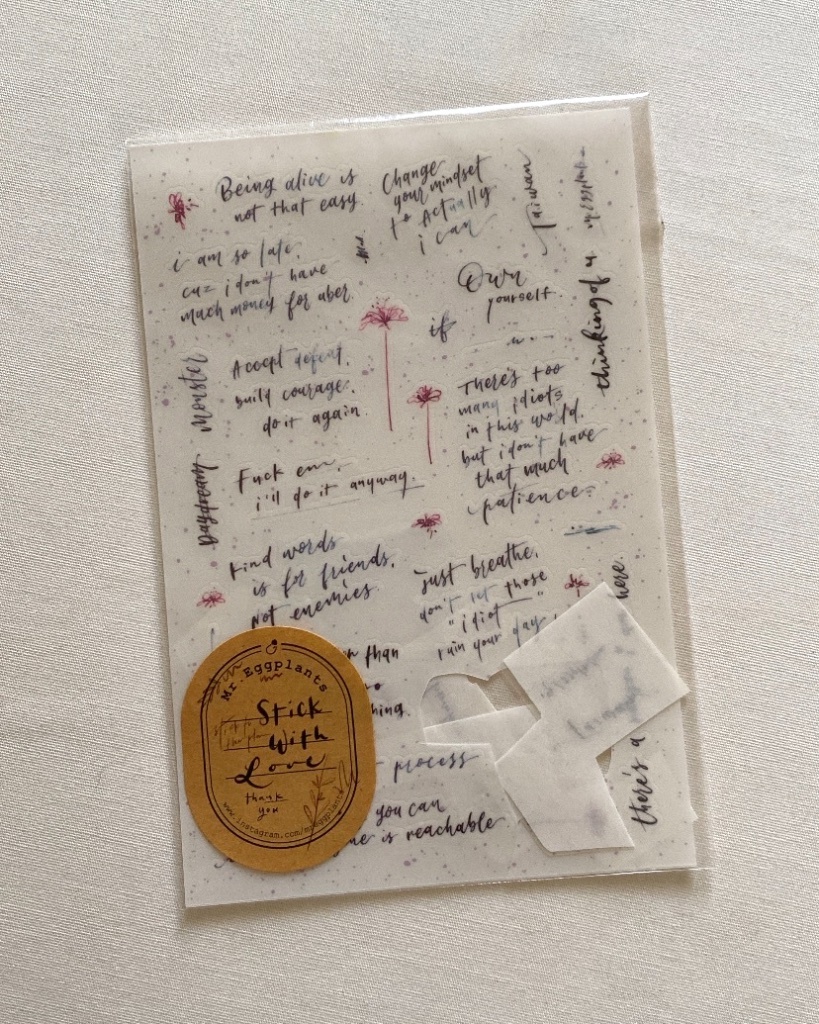 Being alive is
not that easy
Change
your mindset
to Actually
i can
Taiwan
i am so late,
cuz i don't have
much money for uber
Own
yourself
thinking of u
if
Accept defeat,
build courage,
do it again
monster
There's too
many idiots
in this world.
but i don't have
that much
patience
Daydream
Fuck em,
i'll do it anyway.
Kind words
is for friends,
Not enemies
Just breathe,
don't let those
"idiot"
ruin your day
here.
than
hing.
process
you can
is reachable
there's a
Mr. Eggplants
Stick
With
Love
thank
you